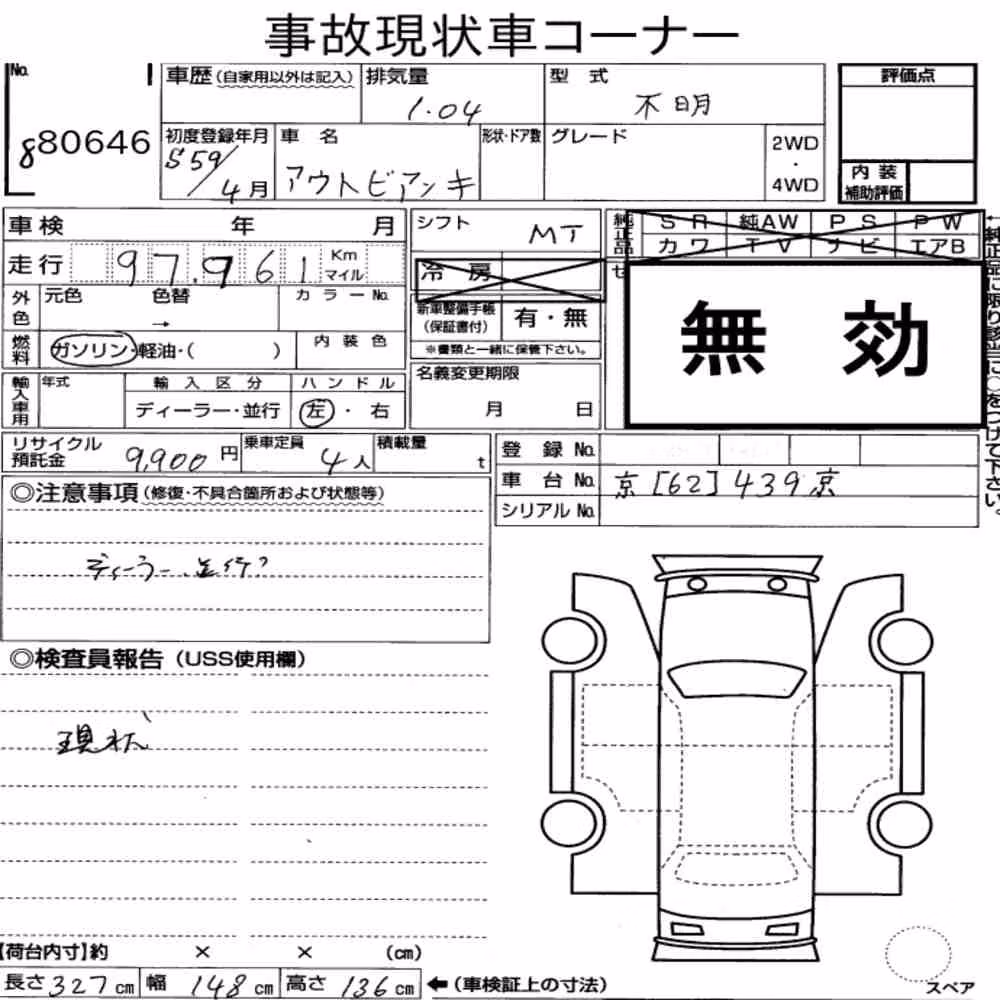 事故現状車コーナー
No. 880646
車歴(自家用以外は記入) 排気量 1.04 型式 不明 評価点
初度登録年月 S59/4月 車名 アウトビアンキ 形状・ドア数 グレード 2WD・4WD
内装補助評価
車検 年 月 シフト MT 純正品 SR 純AW PS PW
カワ TV ナビ エアB
走行 97.961 Km マイル 冷房
外色 元色 色替 → カラーNo. 新車整備手帳(保証書付) 有・無
※書類と一緒に保管下さい。
燃料 ガソリン・軽油・( ) 内装色
無効
←純正品に限り該当に○をつけて下さい。
輸入車用 年式 輸入区分 ディーラー・並行 ハンドル 左・右 名義変更期限 月 日
リサイクル預託金 9,900円 乗車定員 4人 積載量 t 登録No.
車台No. 京[62]439京
シリアルNo.
◎注意事項(修復・不具合箇所および状態等)
ディーラー、並行?
◎検査員報告(USS使用欄)
現状
【荷台内寸】約 × × (cm)
長さ327cm 幅148cm 高さ136cm ←(車検証上の寸法)
スペア